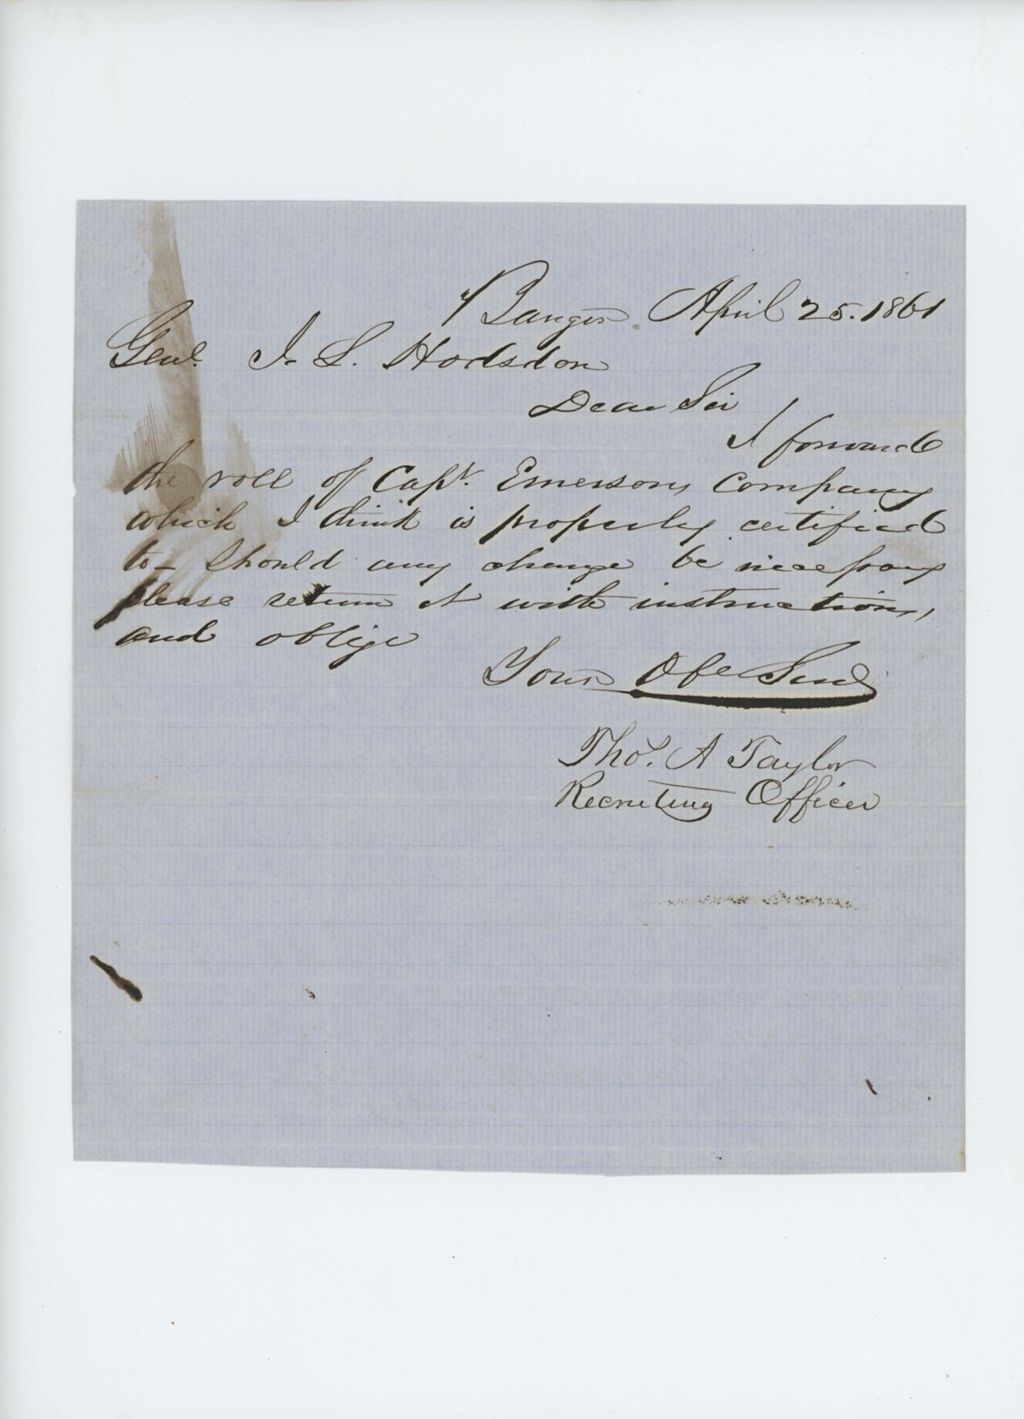 Bangor April 25. 1861
Genl. J. L. Hodsdon
Dear Sir
I forward
the roll of Capt. Emersons Company
which I think is properly certified
to - Should any change be necessary
please return it with instructions,
and oblige
Yours Obe Servt
Thos. A Taylor
Recruiting Officer